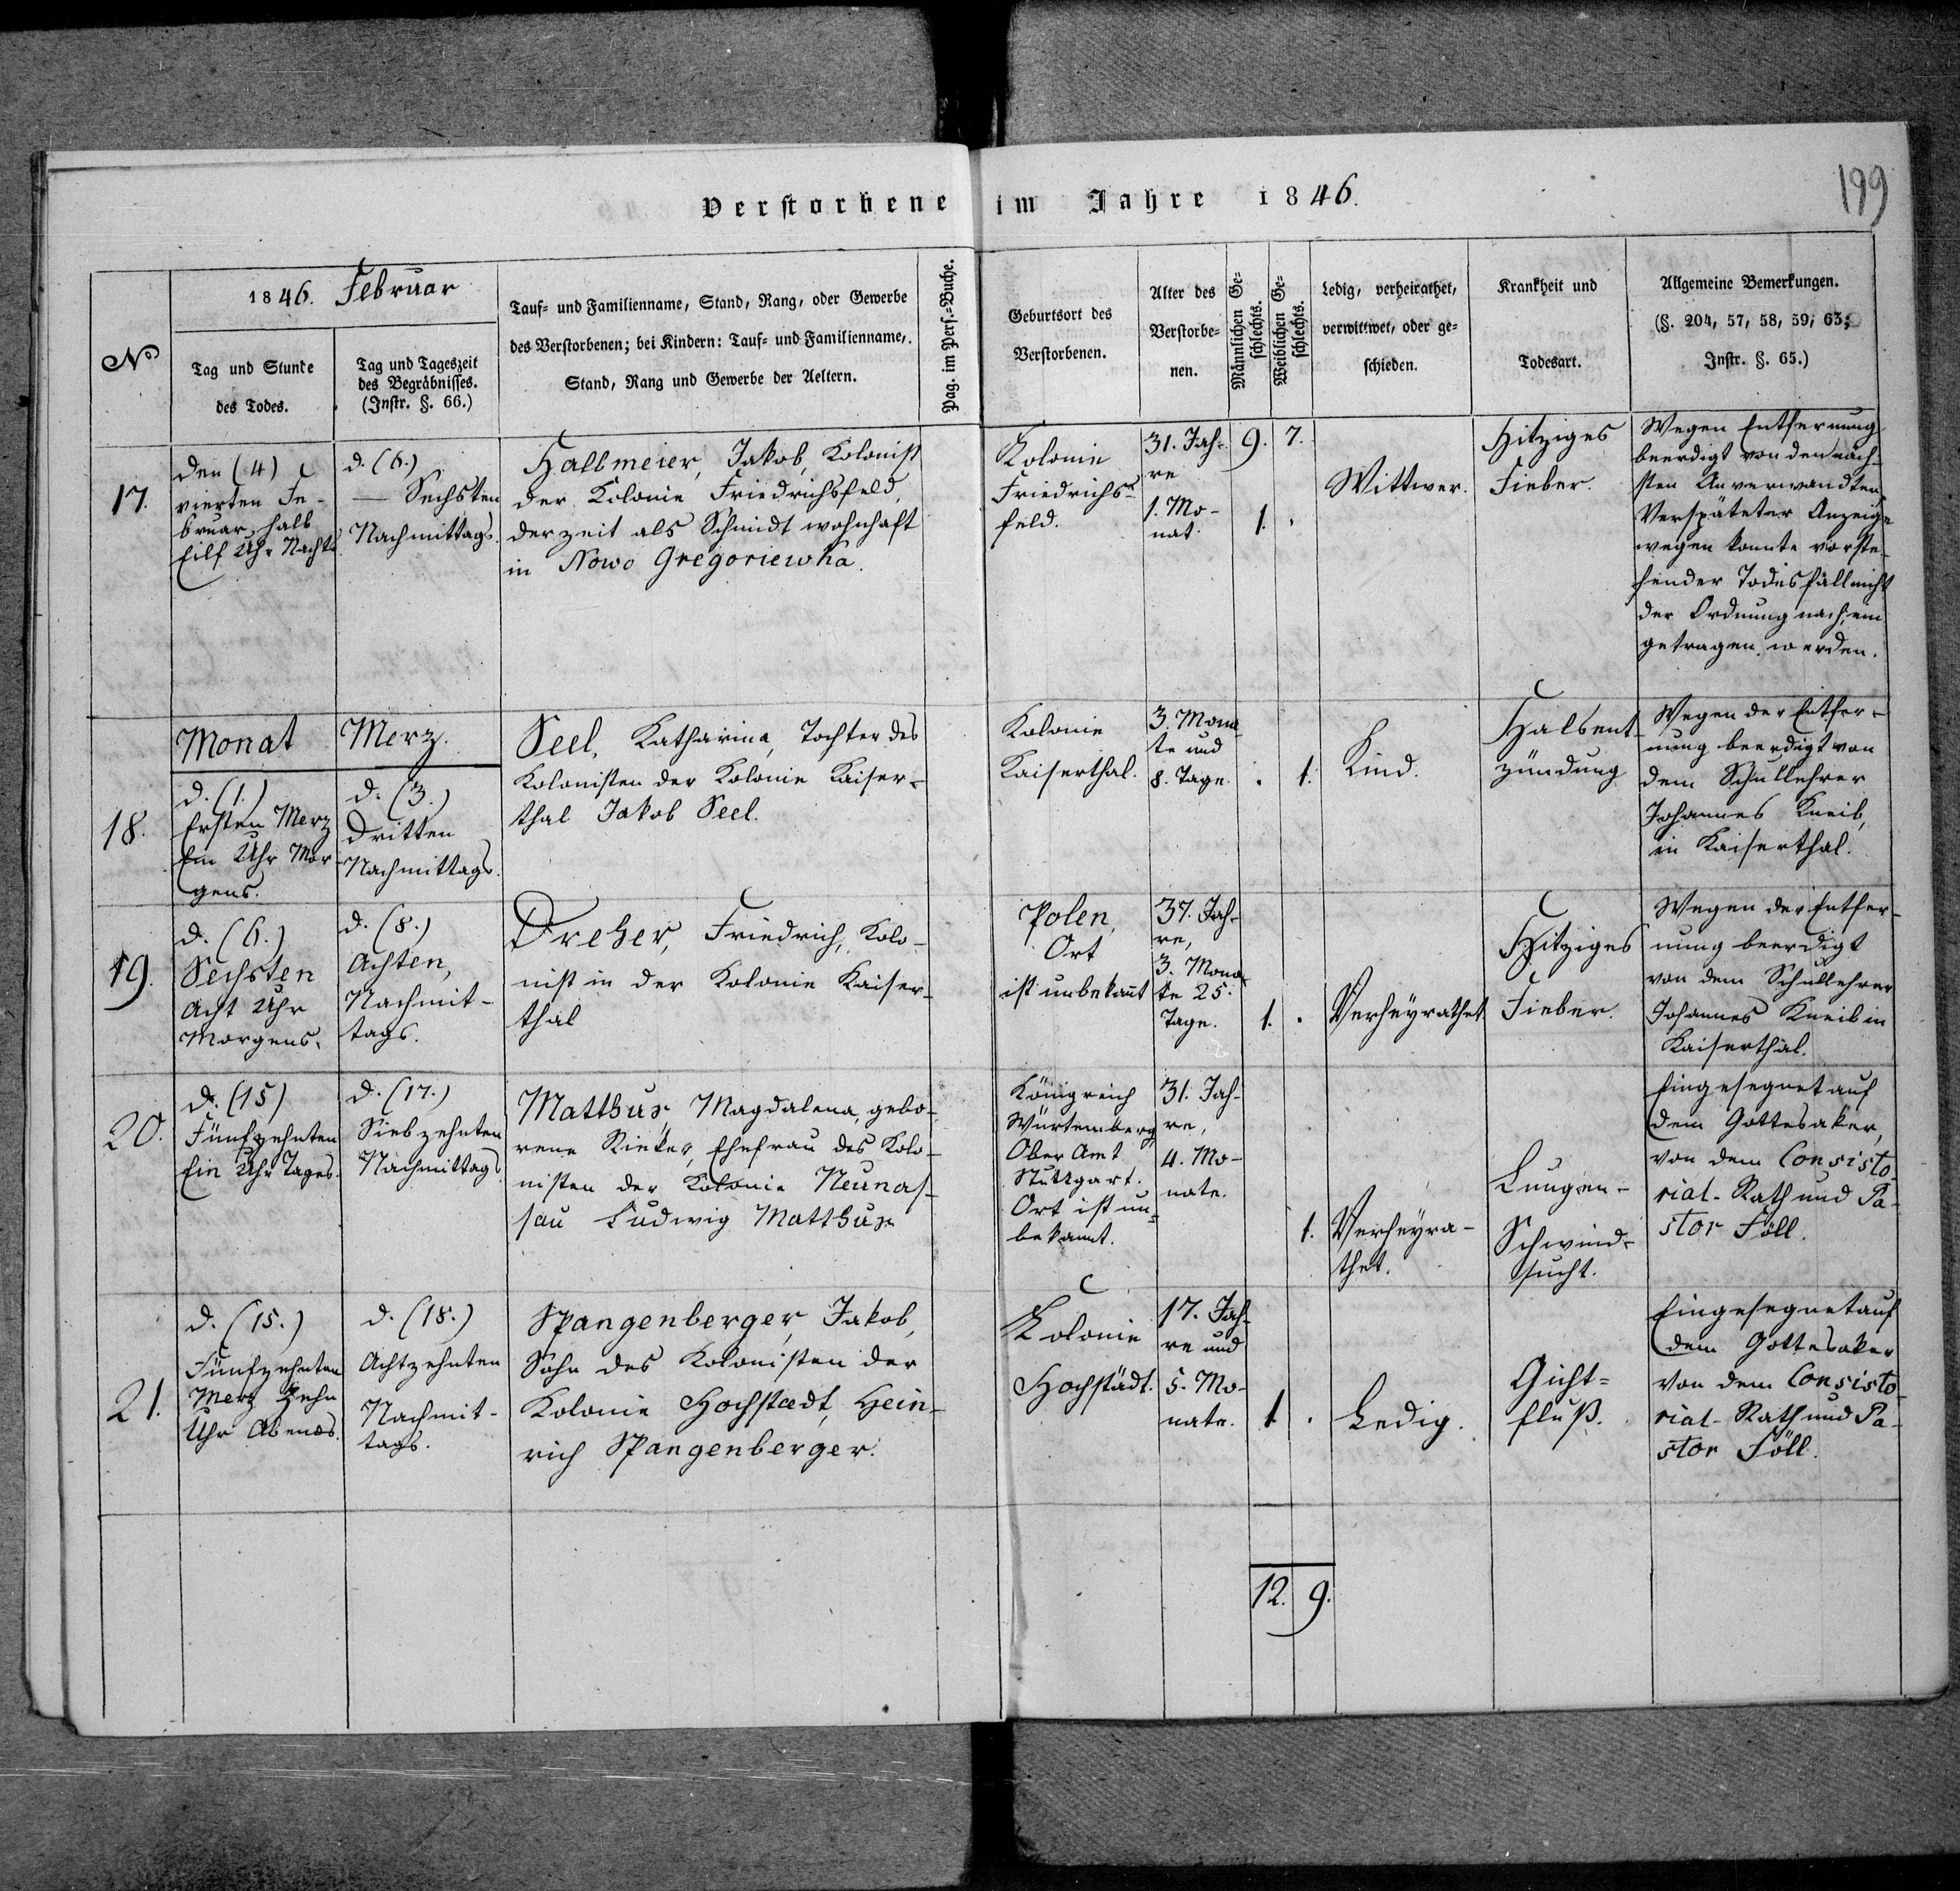 Verstorbene im Jahre 1846.
199
No
1846. Februar
Tag und Stunde
des Todes.
Tag und Tageszeit
des Begräbnisses.
(Instr. §. 66.)
Tauf- und Familienname, Stand, Rang, oder Gewerbe
des Verstorbenen; bei Kindern: Tauf- und Familienname,
Stand, Rang und Gewerbe der Aeltern.
Pag. im Pers.-Buche.
Geburtsort des
Verstorbenen.
Alter des
Verstorbe-
nen.
Männlichen Ge-
schlechts.
Weiblichen Ge-
schlechts.
Ledig, verheirathet,
verwittwet, oder ge-
schieden.
Krankheit und
Todesart.
Allgemeine Bemerkungen.
(§. 204, 57, 58, 59, 63;
Instr. §. 65.)
17.
den (4)
vierten Fe-
bruar, halb
Eilf Uhr Nachts
d. (6.)
— Sechsten
Nachmittags.
Hallmeier, Jakob, Kolonist
der Kolonie Friedrichsfeld,
derzeit als Schmidt wohnhaft
in Nowo Gregoriewka.
Kolonie
Friedrichs-
feld.
31. Jah-
re
1. Mo-
nat.
9. 7.
1. .
Wittwer.
Hitziges
Fieber.
Wegen Entfernung
beerdigt von den näch-
sten Anverwandten.
Verspäteter Anzeige
wegen konnte vorste-
hender Todesfall nicht
der Ordnung nach, ein
getragen werden.
Monat Merz.
18.
d. (1.)
Ersten Merz
Ein Uhr Mor-
gens.
d. (3.)
Dritten
Nachmittags.
Seel, Katharina, Tochter des
Kolonisten der Kolonie Kaiser-
thal Jakob Seel.
Kolonie
Kaiserthal.
3. Mona-
te und
8. Tage.
. 1.
Kind.
Halsent-
zündung
Wegen der Entfer-
nung beerdigt von
dem Schullehrer
Johannes Kneib,
in Kaiserthal.
19.
d. (6.)
Sechsten
Acht Uhr
Morgens.
d. (8.)
Achten,
Nachmit-
tags.
Dreher, Friedrich, Kolo-
nist in der Kolonie Kaiser-
thal
Polen,
Ort
ist unbekannt
37. Jah-
re,
3. Mona-
te 25.
Tage.
1. .
Verheyrathet
Hitziges
Fieber.
Wegen der Entfer-
nung beerdigt
von dem Schullehrer
Johannes Kneib in
Kaiserthal.
20.
d. (15)
Fünfzehnten
Ein Uhr Tages.
d. (17.)
Siebzehnten
Nachmittags
Matthus, Magdalena, gebo-
rene Rieker, Ehefrau des Kolo-
nisten der Kolonie Neunas-
sau Ludwig Matthus
Königreich
Würtemberg,
Ober Amt
Stuttgart.
Ort ist un-
bekannt.
31. Jah-
re,
4. Mo-
nate.
1.
Verheyra-
thet.
Lungen-
Schwind-
sucht.
Eingesegnet auf
dem Gottesaker,
von dem Consisto
rial-Rath und Pa-
stor Föll.
21.
d. (15.)
Fünfzehnten
Merz Zehn
Uhr Abends.
d. (18.)
Achtzehnten
Nachmit-
tags.
Spangenberger, Jakob,
Sohn des Kolonisten der
Kolonie Hochstaedt, Hein-
rich Spangenberger.
Kolonie
Hochstädt.
17. Jah-
re und
5. Mo-
nate.
1 .
Ledig.
Gicht=
fluß.
Eingesegnet auf
dem Gottesaker
von dem Consisto
rial-Rath und Pa-
stor Föll.
12. 9.